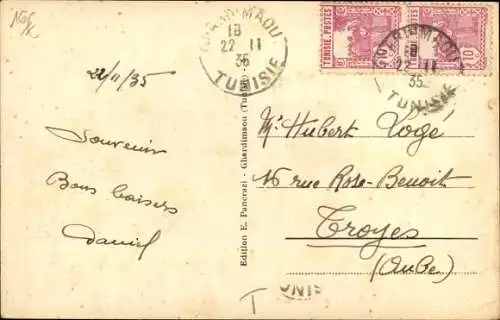 22/11/35
Souvenir
Bons baisers
Daniel
GHARDIMAOU
18
22 11
35
TUNISIE
Edition E. Pancrazi - Ghardimaou (Tunisie)
TUNISIE POSTES
TUNISIE POSTES
10
GHARDIMAOU
18
22 11
35
TUNISIE
Mr Hubert Logé
16 rue Rose-Benoit
Troyes
(Aube)
T